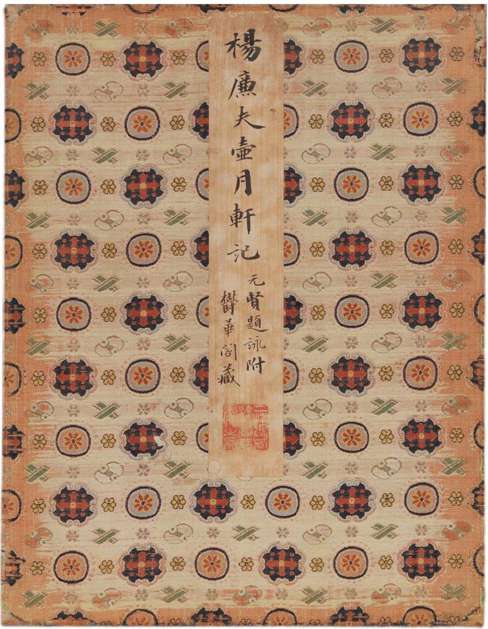 楊廉夫壺月軒記
元賢題詠附
鬱華閣藏